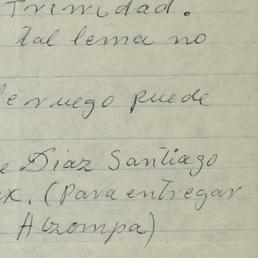 Trinidad.
tal lema no
le ruego puede
e Diaz Santiago
x. (Para entregar
Atzompa)